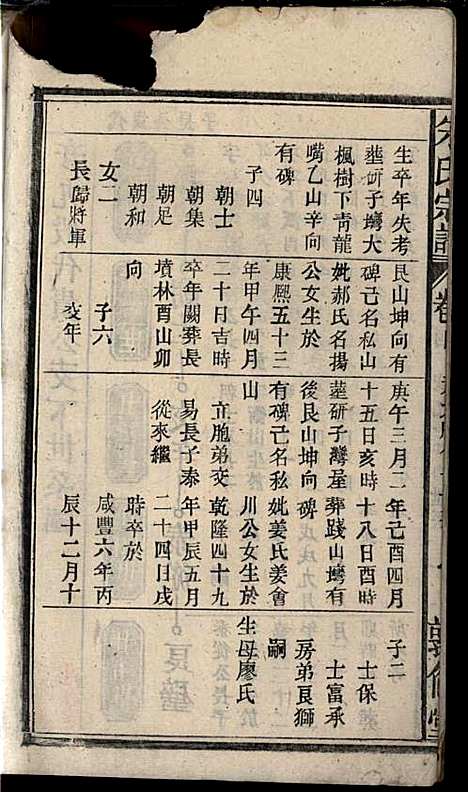 氏宗譜
卷
生卒年失考
塟研子塆大
楓樹下青龍
嘴乙山辛向
有碑
子四
朝士
朝集
朝足
朝和
女二
長歸將軍
艮山坤向有
碑己名私山
妣郝氏名揚
公女生於
康熙五十三
年甲午四月
二十日吉時
卒年闕葬長
墳林酉山卯
向
子六
亥年
庚午三月二
十五日亥時
塟研子灣屋
後艮山坤向
有碑己名私
山
立胞弟交
易長子泰
從來繼
年己酉四月
十八日酉時
葬踐山塆有
碑
妣姜氏姜會
川公女生於
乾隆四十九
年甲辰五月
二十四日戌
時卒於
咸豐六年丙
辰十二月十
子二
士保
士富承
房弟艮獅
嗣
生母廖氏